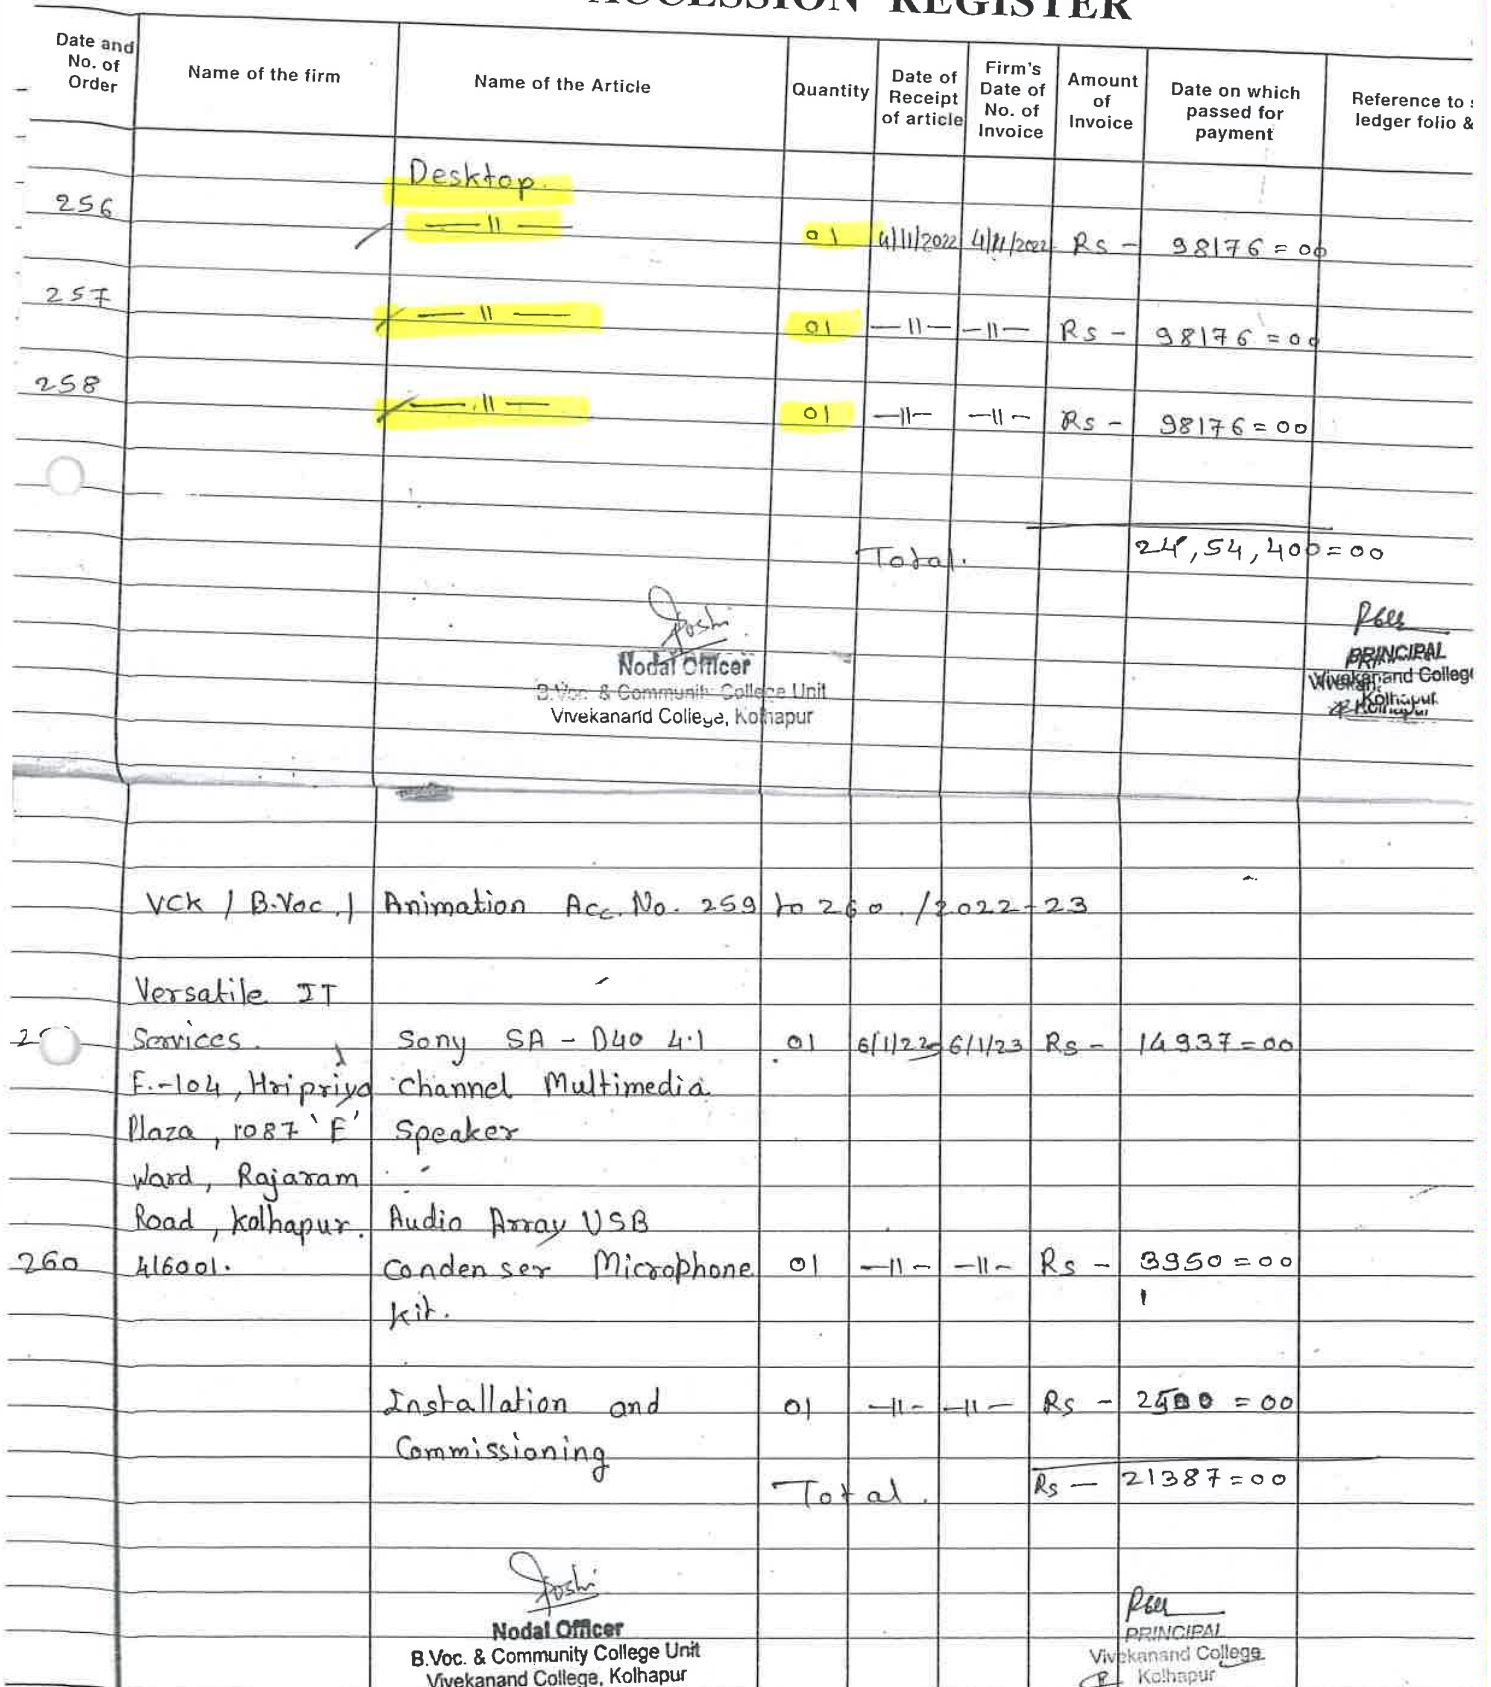 ACCESSION REGISTER
Date and No. of Order
Name of the firm
Name of the Article
Quantity
Date of Receipt of article
Firm's Date of No. of Invoice
Amount of Invoice
Date on which passed for payment
Reference to
ledger folio &
Desktop.
256 —11— 01 4/11/2022 4/11/2022 Rs - 98176=00
257 —11— 01 —11— —11— Rs - 98176=00
258 —11— 01 —11— —11— Rs - 98176=00
Total. 24,54,400=00
Joshi
Nodal Officer
B.Voc. & Community College Unit
Vivekanand College, Kolhapur
PRINCIPAL
Vivekanand College
Kolhapur
VCK / B.Voc. / Animation Acc. No. 259 to 260 /2022-23
Versatile IT
Services. Sony SA - D40 4.1 01 6/1/23 6/1/23 Rs - 14937=00
E.-104, Hripriya Channel Multimedia
Plaza, 1087 'E' Speaker
Ward, Rajaram
Road, Kolhapur. Audio Array USB
260 416001. Condenser Microphone 01 —11— —11— Rs - 3950=00
kit.
Installation and 01 —11— —11— Rs - 2500=00
Commissioning
Total. Rs — 21387=00
Joshi
Nodal Officer
B.Voc. & Community College Unit
Vivekanand College, Kolhapur
PRINCIPAL
Vivekanand College
Kolhapur